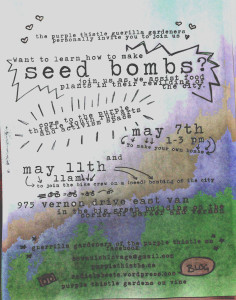 the purple thistle guerilla gardeners
personally invite you to join us
want to learn how to make
seed bombs?
join us as we assist food
plants in their rewilding of
the city.
come to the purple
thistle activism space
may 7th
1-3 pm
to make your own bombs
and
may 11th
11am
to join the bike crew on a (seed) bombing of the city
975 vernon drive east van
in the
guerilla gardeners of the purple thistle on
facebook
purplethistle.ca
wordpress.com
BLOG
purple thistle gardens on vimeo